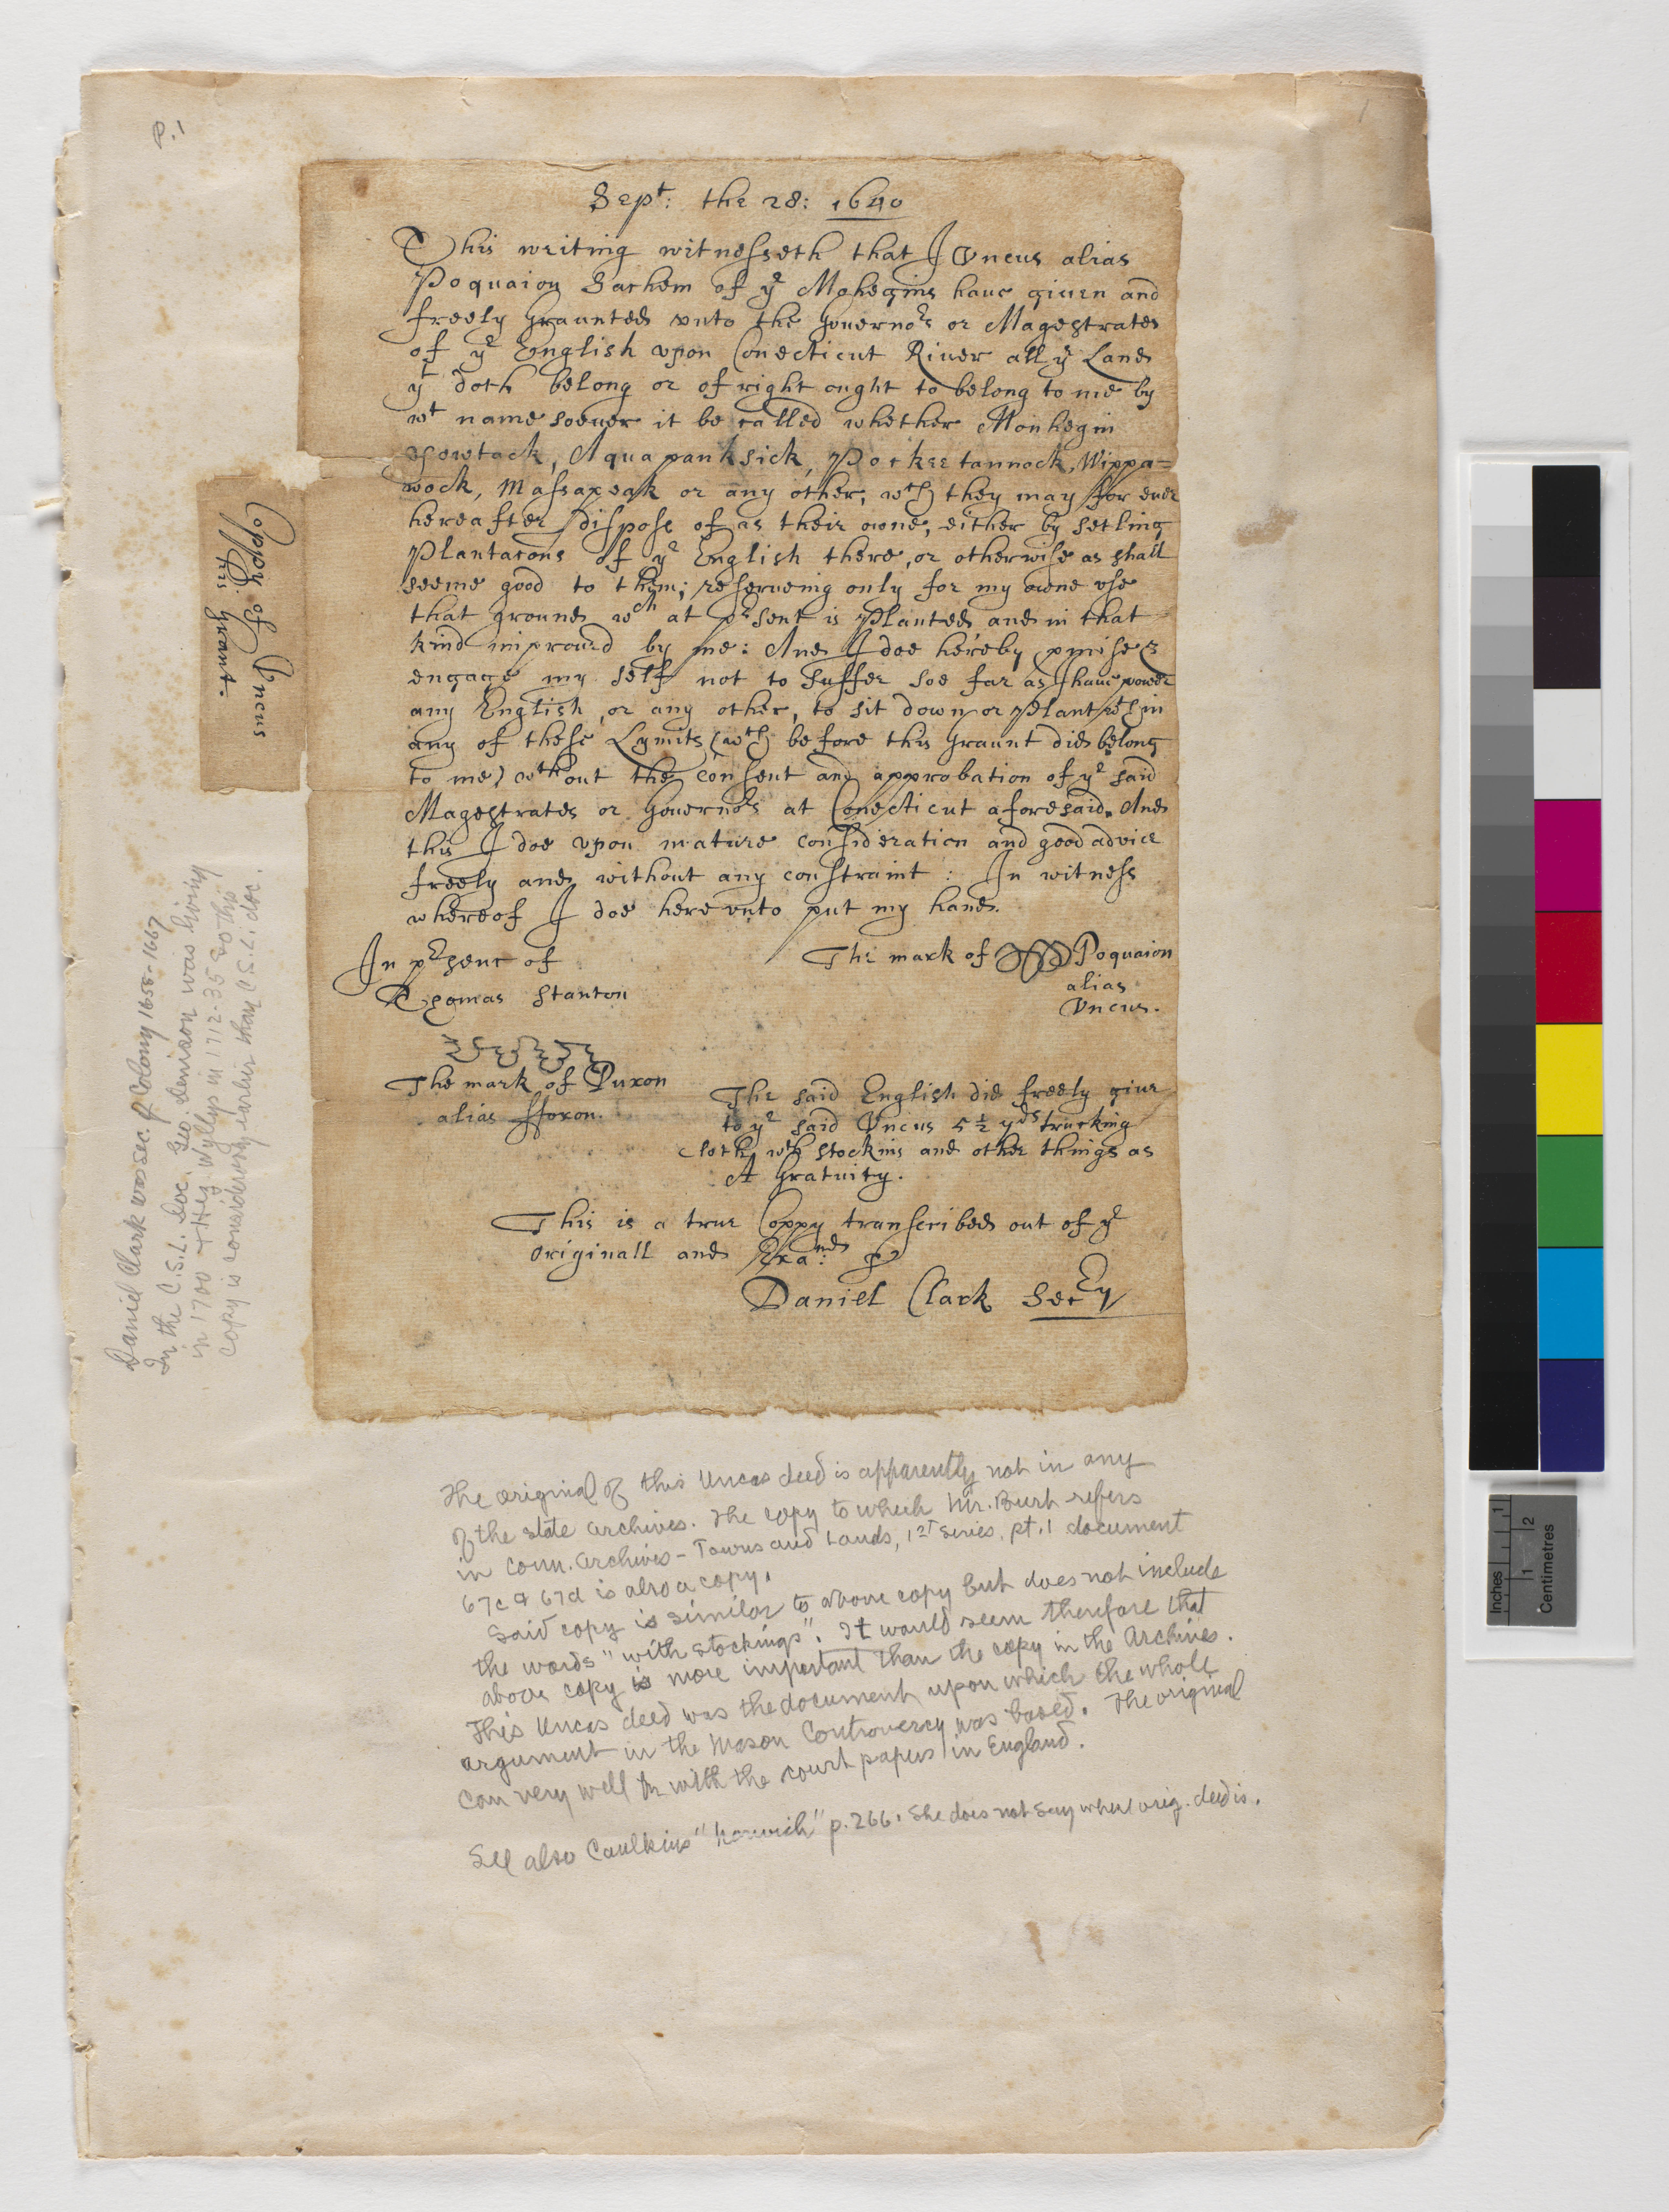 P.1
1
Sept: the 28: 1640
This writing witnesseth that I Vncus alias
Poquaion Sachem of ye Mohegins haue giuen and
freely Graunted vnto the Gouernors or Magestrates
of ye English vpon Conecticut Riuer all ye Land
yt doth belong or of right ought to belong to me by
wt name soeuer it be called whether Monhegin
Yowtack, Aquapanksick, Pockeetannock, Wippa=
wock, Massapeak or any other, wch they may for euer
hereafter dispose of as their owne, either by setling
Plantacons of ye English there, or otherwise as shall
seeme good to them; reserueing only for my owne vse
that ground wch at prsent is Planted and in that
kind improued by me: And I doe hereby pmise &
engage my self not to suffer soe far as I haue power
any English, or any other, to sit down or Plant wthin
any of these Lymits (wch before this graunt did belong
to me) wthout the consent and approbation of ye said
Magestrates or Gouernors at Conecticut aforesaid. And
this I doe vpon mature consideration and good advice
freely and without any constraint: In witness
whereof I doe herevnto put my hand.
In prsenc of
Thomas Stanton
The mark of Poquaion
alias
Vncus.
The mark of Puxon
alias ffoxon.
The said English did freely giue
to ye said Vncus 5 ½ yds trucking
cloth, wth stockins and other things as
A Gratuity.
This is a true Coppy transcribed out of ye
originall and Exand: p
Daniel Clark Secry
Coppie of Vncus
his grant.
Daniel Clark was sec. of Colony 1658-1667
In the C.S.L. doc. Geo. Denison was living
in 1700 + Hez. Wyllys in 1712-35 so this
copy is considerably earlier than C.S.L. doc.
The original of this Uncas deed is apparently not in any
of the state archives. The copy to which Mr. Burt refers
in Conn. Archives - Towns and Lands, 1st series, pt. 1 document
67c & 67d is also a copy.
Said copy is similar to above copy but does not include
the words "with stockings". It would seem therefore that
above copy is more important than the copy in the Archives.
This Uncas deed was the document upon which the whole
argument in the Mason Controvercy was based. The original
can very well be with the court papers in England.
See also Caulkins "Norwich" p. 266. She does not say where orig. deed is.
Inches
1
1
2
Centimetres